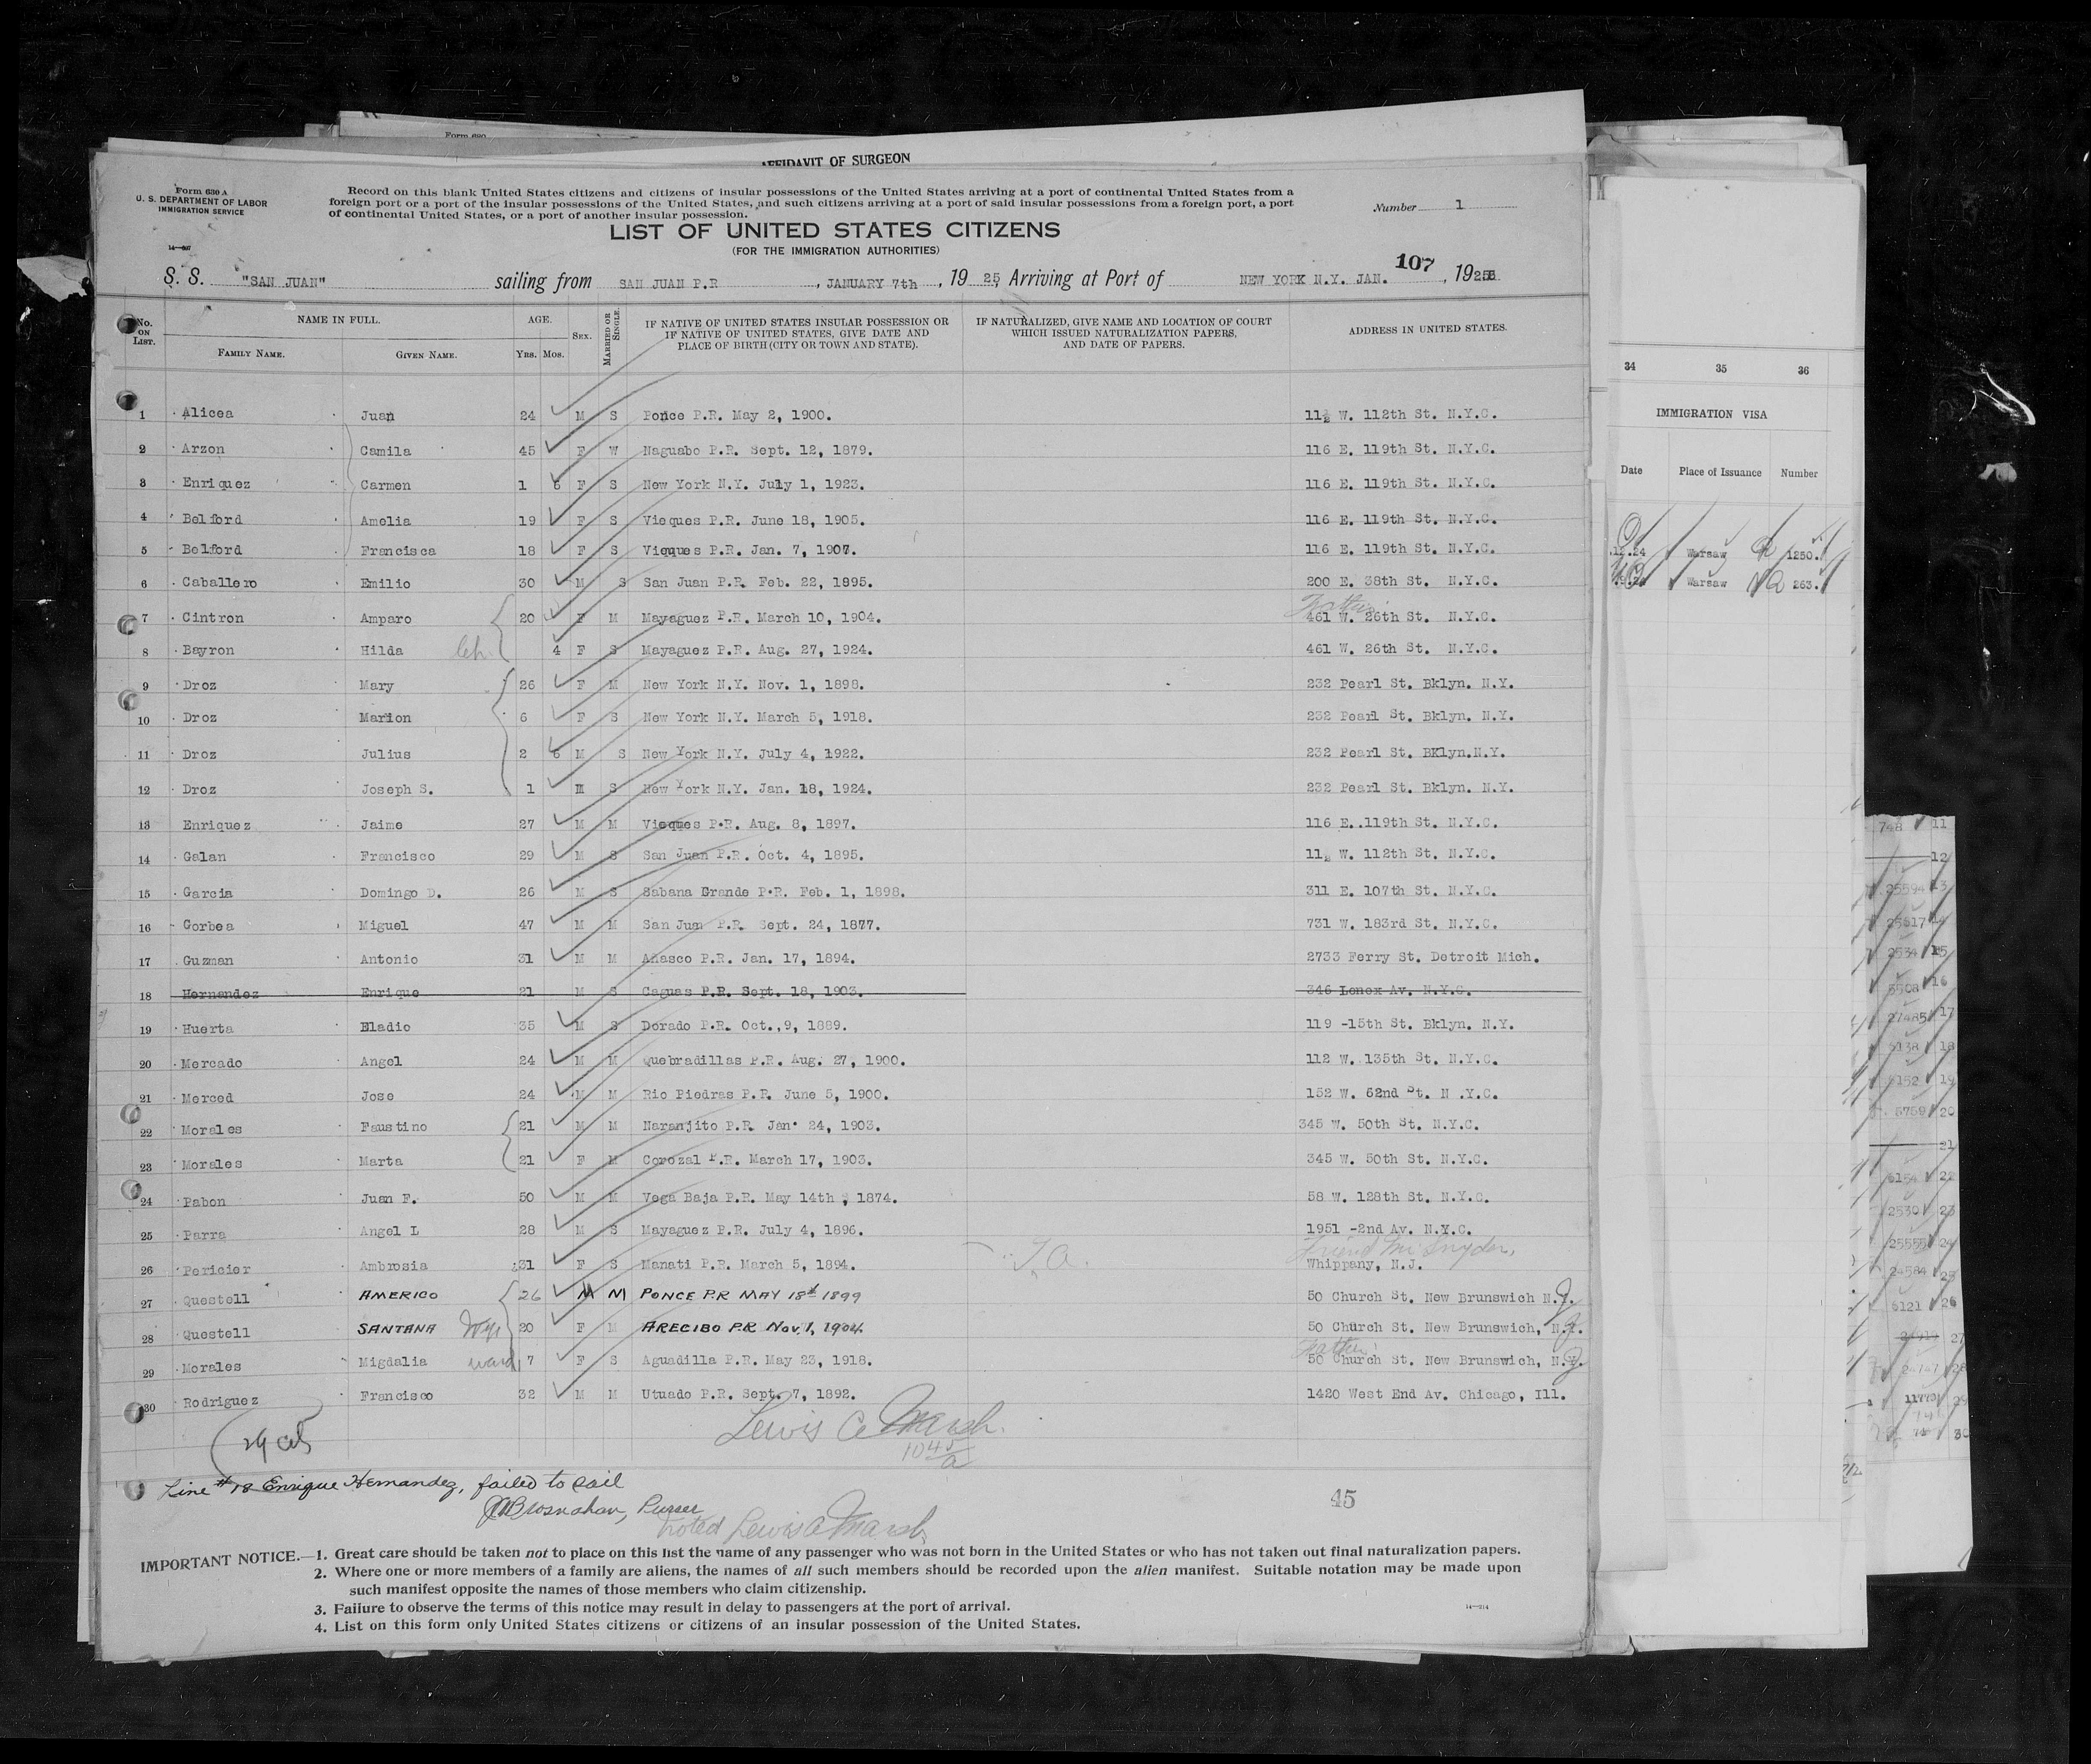 Form 630
AFFIDAVIT OF SURGEON
Form 630 A
U. S. DEPARTMENT OF LABOR
IMMIGRATION SERVICE
Record on this blank United States citizens and citizens of insular possessions of the United States arriving at a port of continental United States from a
foreign port or a port of the insular possessions of the United States, and such citizens arriving at a port of said insular possessions from a foreign port, a port
of continental United States, or a port of another insular possession.
Number 1
LIST OF UNITED STATES CITIZENS
(FOR THE IMMIGRATION AUTHORITIES)
S. S. "SAN JUAN" sailing from SAN JUAN P.R , JANUARY 7th , 19 25, Arriving at Port of NEW YORK N.Y. JAN. 107 , 1925
No. ON LIST. NAME IN FULL. FAMILY NAME. GIVEN NAME. AGE. Yrs. Mos. SEX. MARRIED OR SINGLE. IF NATIVE OF UNITED STATES INSULAR POSSESSION OR IF NATIVE OF UNITED STATES, GIVE DATE AND PLACE OF BIRTH (CITY OR TOWN AND STATE). IF NATURALIZED, GIVE NAME AND LOCATION OF COURT WHICH ISSUED NATURALIZATION PAPERS, AND DATE OF PAPERS. ADDRESS IN UNITED STATES.
1 Alicea Juan 24 M S Ponce P.R. May 2, 1900. 11½ W. 112th St. N.Y.C.
2 Arzon Camila 45 F W Naguabo P.R. Sept. 12, 1879. 116 E. 119th St. N.Y.C.
3 Enriquez Carmen 1 6 F S New York N.Y. July 1, 1923. 116 E. 119th St. N.Y.C.
4 Belford Amelia 19 F S Vieques P.R. June 18, 1905. 116 E. 119th St. N.Y.C.
5 Belford Francisca 18 F S Vieques P.R. Jan. 7, 1907. 116 E. 119th St. N.Y.C.
6 Caballero Emilio 30 M S San Juan P.R. Feb. 22, 1895. 200 E. 38th St. N.Y.C.
Father
7 Cintron Amparo 20 F M Mayaguez P.R. March 10, 1904. 461 W. 26th St. N.Y.C.
8 Bayron Hilda Ch. 4 F S Mayaguez P.R. Aug. 27, 1924. 461 W. 26th St. N.Y.C.
9 Droz Mary 26 F M New York N.Y. Nov. 1, 1898. 232 Pearl St. Bklyn. N.Y.
10 Droz Marion 6 F S New York N.Y. March 5, 1918. 232 Pearl St. Bklyn. N.Y.
11 Droz Julius 2 6 M S New York N.Y. July 4, 1922. 232 Pearl St. BKlyn.N.Y.
12 Droz Joseph S. 1 M S New York N.Y. Jan. 18, 1924. 232 Pearl St. Bklyn. N.Y.
13 Enriquez Jaime 27 M M Vieques P.R. Aug. 8, 1897. 116 E. 119th St. N.Y.C.
14 Galan Francisco 29 M S San Juan P.R. Oct. 4, 1895. 11½ W. 112th St. N.Y.C.
15 Garcia Domingo D. 26 M S Sabana Grande P.R. Feb. 1, 1898. 311 E. 107th St. N.Y.C.
16 Gorbea Miguel 47 M M San Juan P.R. Sept. 24, 1877. 731 W. 183rd St. N.Y.C.
17 Guzman Antonio 31 M M Añasco P.R. Jan. 17, 1894. 2733 Ferry St. Detroit Mich.
18 Hernandez Enrique 21 M S Caguas P.R. Sept. 18, 1903. 346 Lenox Av. N.Y.C.
19 Huerta Eladio 35 M S Dorado P.R. Oct.,9, 1889. 119 -15th St. Bklyn. N.Y.
20 Mercado Angel 24 M M Quebradillas P.R. Aug. 27, 1900. 112 W. 135th St. N.Y.C.
21 Merced Jose 24 M M Rio Piedras P.R. June 5, 1900. 152 W. 62nd St. N .Y.C.
22 Morales Faustino 21 M M Naranjito P.R. Jan. 24, 1903. 345 W. 50th St. N.Y.C.
23 Morales Marta 21 F M Corozal P.R. March 17, 1903. 345 W. 50th St. N.Y.C.
24 Pabon Juan F. 50 M M Vega Baja P.R. May 14th , 1874. 58 W. 128th St. N.Y.C.
25 Parra Angel L 28 M S Mayaguez P.R. July 4, 1896. 1951 -2nd Av. N.Y.C.
Friend Mr Snyder,
26 Pericier Ambrosia 31 F S Manati P.R. March 5, 1894. T.A. Whippany, N.J.
27 Questell AMERICO 26 M M PONCE P.R MAY 18th 1899 50 Church St. New Brunswick N.J.
28 Questell SANTANA Wife 20 F M ARECIBO P.R Nov, 1, 1904. 50 Church St. New Brunswich, N.J.
Father
29 Morales Migdalia ward 7 F S Aguadilla P.R. May 23, 1918. 50 Church St. New Brunswich, N.J.
30 Rodriguez Francisco 32 M M Utuado P.R. Sept. 7, 1892. 1420 West End Av. Chicago, Ill.
Lewis A Marsh.
1045
a
Line #18 Enrique Hernandez, failed to sail
Brosnahan, Purser
noted Lewis A Marsh
45
IMPORTANT NOTICE.—1. Great care should be taken not to place on this list the name of any passenger who was not born in the United States or who has not taken out final naturalization papers.
2. Where one or more members of a family are aliens, the names of all such members should be recorded upon the alien manifest. Suitable notation may be made upon
such manifest opposite the names of those members who claim citizenship.
3. Failure to observe the terms of this notice may result in delay to passengers at the port of arrival.
4. List on this form only United States citizens or citizens of an insular possession of the United States.
14—214
34 35 36
IMMIGRATION VISA
Date Place of Issuance Number
12.24 Warsaw 1250.
Warsaw 263.
748 11
12
25594 13
25617 14
2534 15
5508 16
27485 17
6138 18
6152 19
5759 20
21
6154 22
2530 23
25555 24
24584 25
6121 26
27
24747 28
11773 29
30